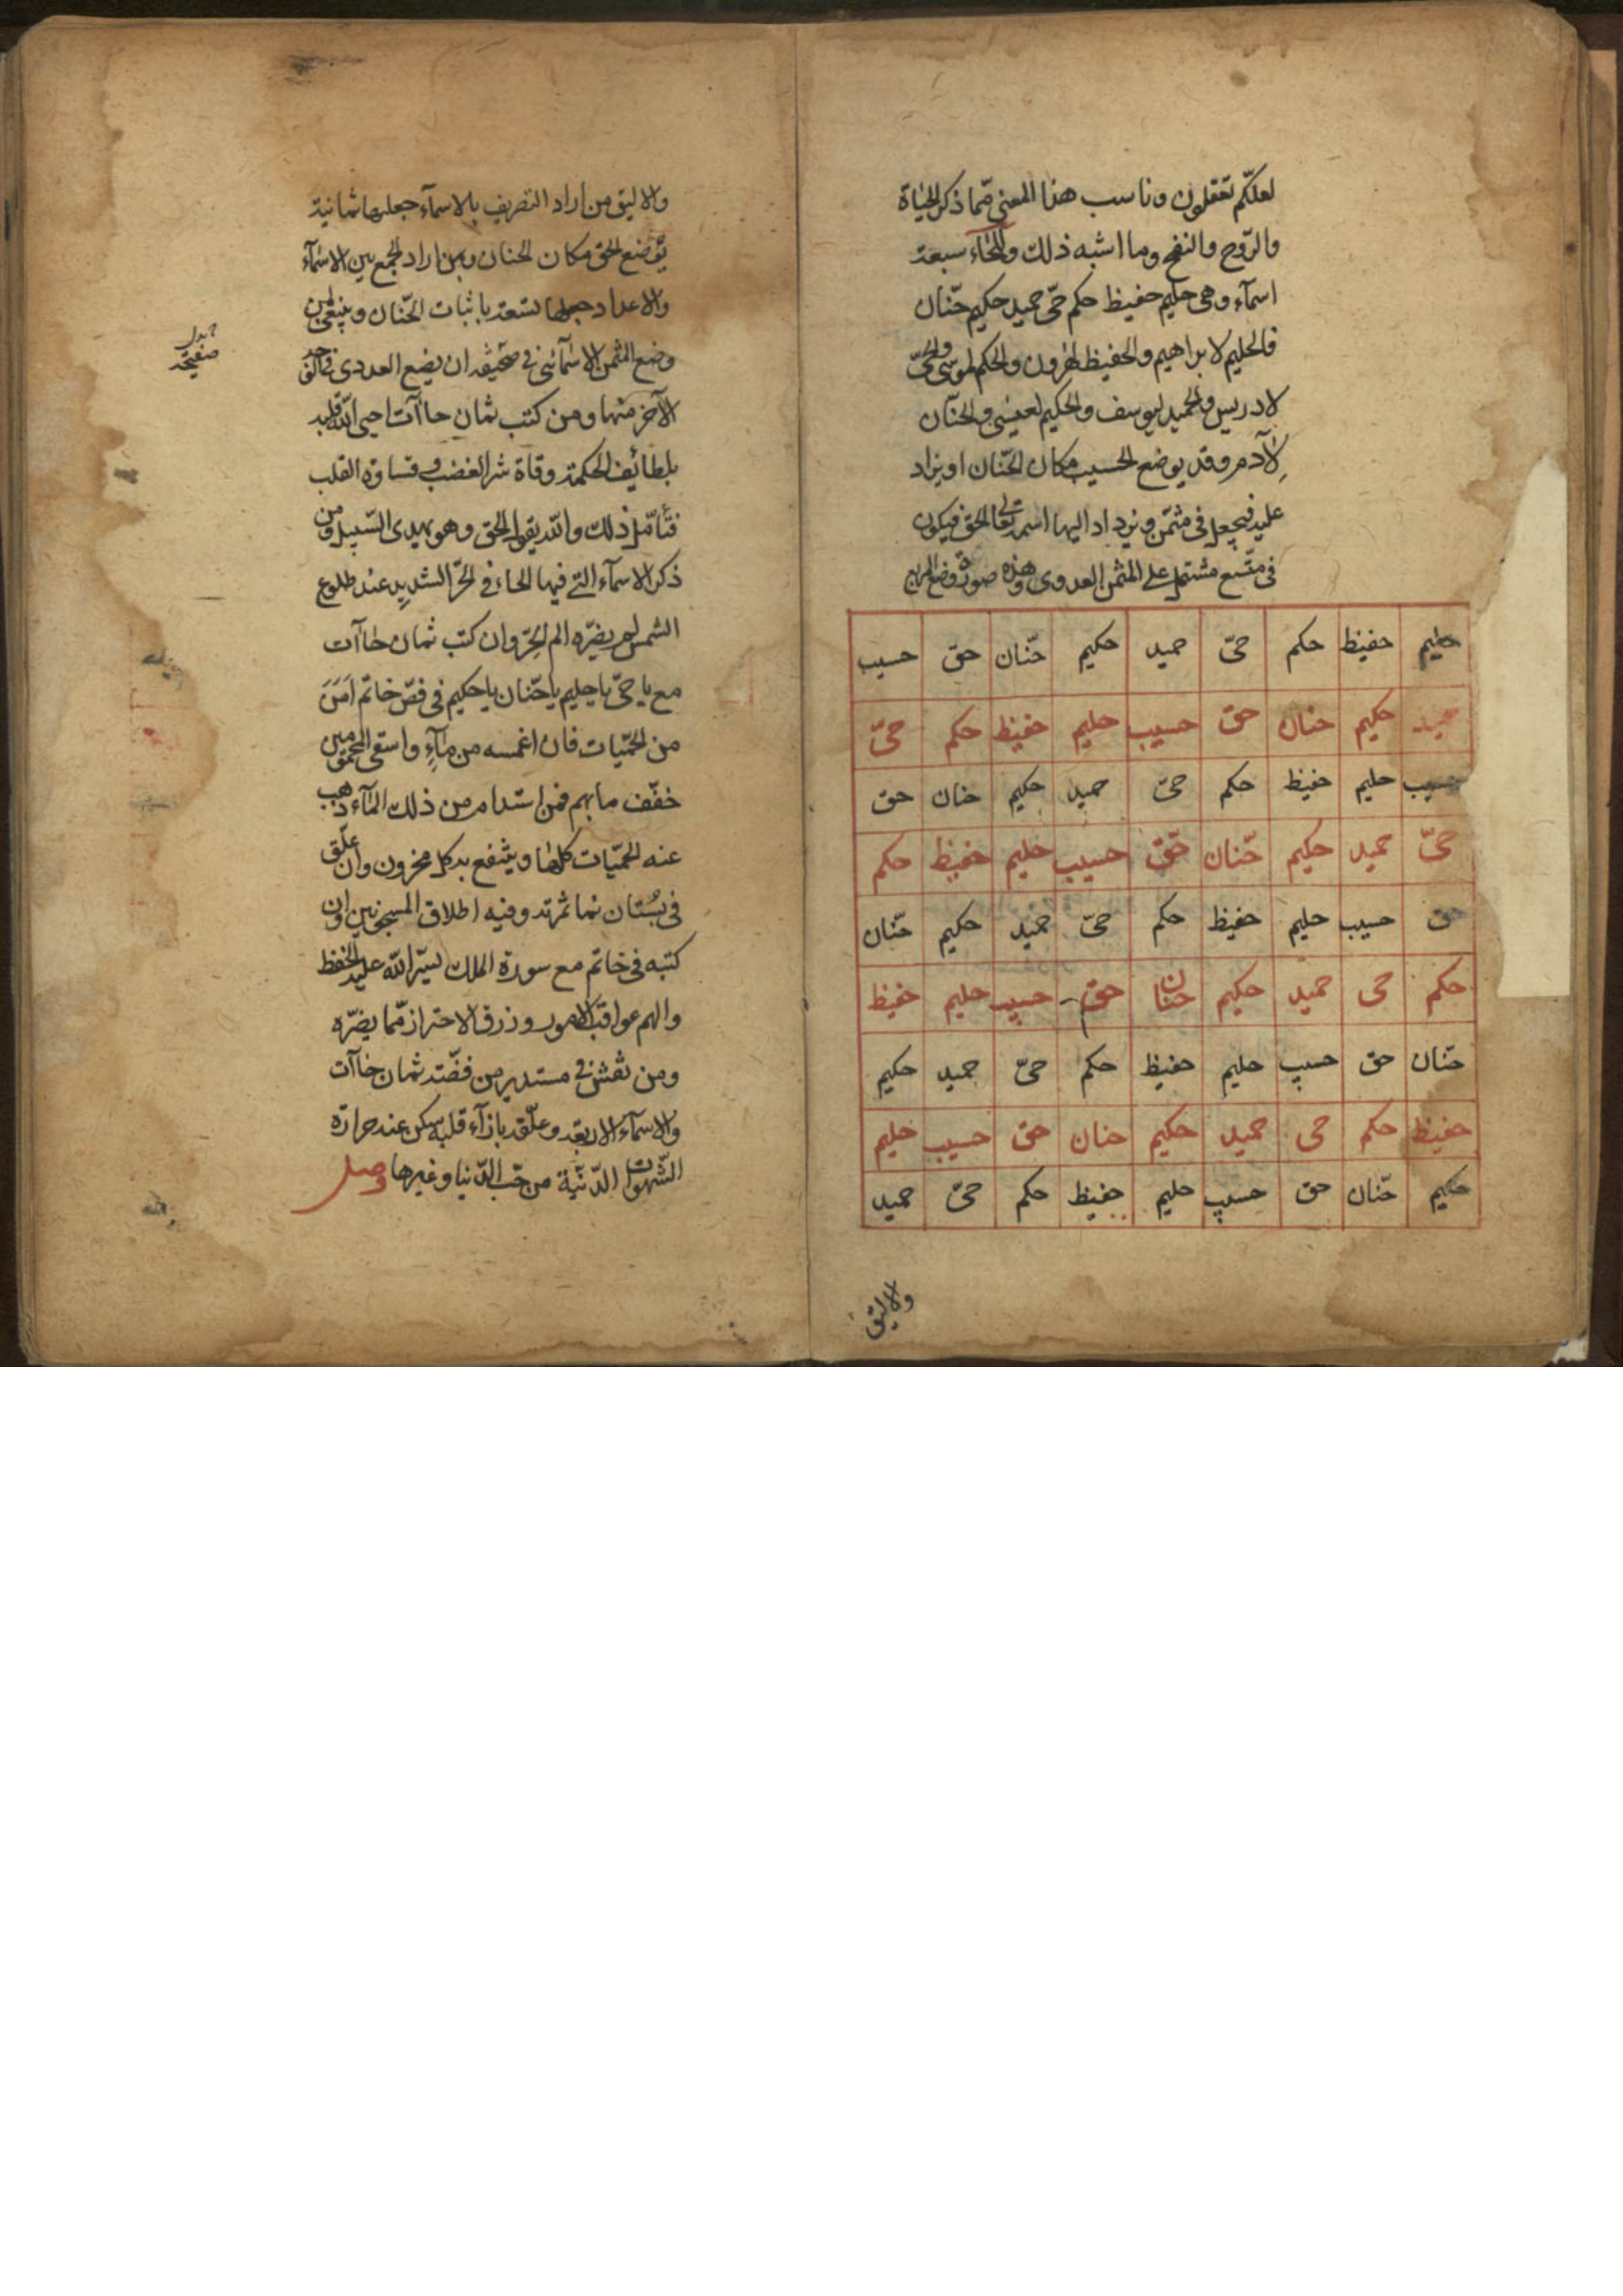 لعلّكم تعقلون وناسب هذا المعنى ممّا ذكر الحياة
والرّوح والنفخ وما اشبه ذلك وللحاء سبعة
اسمآء وهى حليم حفيظ حكم حىّ حميد حكيم حنّان
فالحليم لابراهيم والحفيظ لهرون والحكم لموسى والحىّ
لادريس والحميد ليوسف والحكيم لعيسى والحنّان
لآدم وقد يوضع الحسيب مكان الحنّان او يزاد
عليه فيجعل فى مثمّن ويزداد اليها اسمه تعالى الحق فيكون
فى متّسع مشتمل على المثمن العددى وهذه صورة وضع المربع
حليم حفيظ حكم حىّ حميد حكيم حنّان حق حسيب
حميد حكيم حنان حق حسيب حليم حفيظ حكم حىّ
حسيب حليم حفيظ حكم حىّ حميد حكيم حنان حق
حىّ حميد حكيم حنّان حقّ حسيب حليم حفيظ حكم
حق حسيب حليم حفيظ حكم حىّ حميد حكيم حنّان
حكم حى حميد حكيم حنان حق حسيب حليم حفيظ
حنّان حق حسيب حليم حفيظ حكم حىّ حميد حكيم
حفيظ حكم حى حميد حكيم حنان حق حسيب حليم
حكيم حنّان حق حسيب حليم حفيظ حكم حىّ حميد
والاليق
والاليق من اراد التصريف بالاسمآء جعلها ثمانية
يوضع الحق مكان الحنان ومن اراد الجمع بين الاسمآء
والاعداد جعلها تسعة باثبات الحنّان وينبغى لمن
وضع المثمن الاسمآئى فى صحيفة ان يضع العددى فى
الآخر منها ومن كتب ثمان حاآت احيى الله قلبه
بلطائف الحكمة وقاه شر الغضب وقساوة القلب
فتأمّل ذلك والله يقول الحق وهو يهدى السّبيل ومن
ذكر الاسمآء التى فيها الحاء فى الحرّ الشديد عند طلوع
الشمس لم يضرّه الم الحرّ وان كتب ثمان حاآت
مع يا حىّ يا حليم يا حنّان يا حكيم فى فصّ خاتم امن
من الحمّيات فان اغمسه من مآءٍ واسقى المحمومين
خفّف ما بهم فمن استدام من ذلك المآء ذهب
عنه الحمّيات كلها وينتفع به كل محزون وان علّق
فى بستان نما ثمرته وفيه اطلاق المسجونين وان
كتبه فى خاتم مع سورة الملك يسّر الله عليه الحفظ
والهم عواقب الامور ورزق الاحتراز ممّا يضرّه
ومن نقش فى مستدير من فضّة ثمان حاآت
والاسمآء الاربعة وعلّقه بازآء قلبه سكن عنه حرارة
الشّهوات الدّنيّة من حبّ الدّنيا وغيرها وصل
جدول